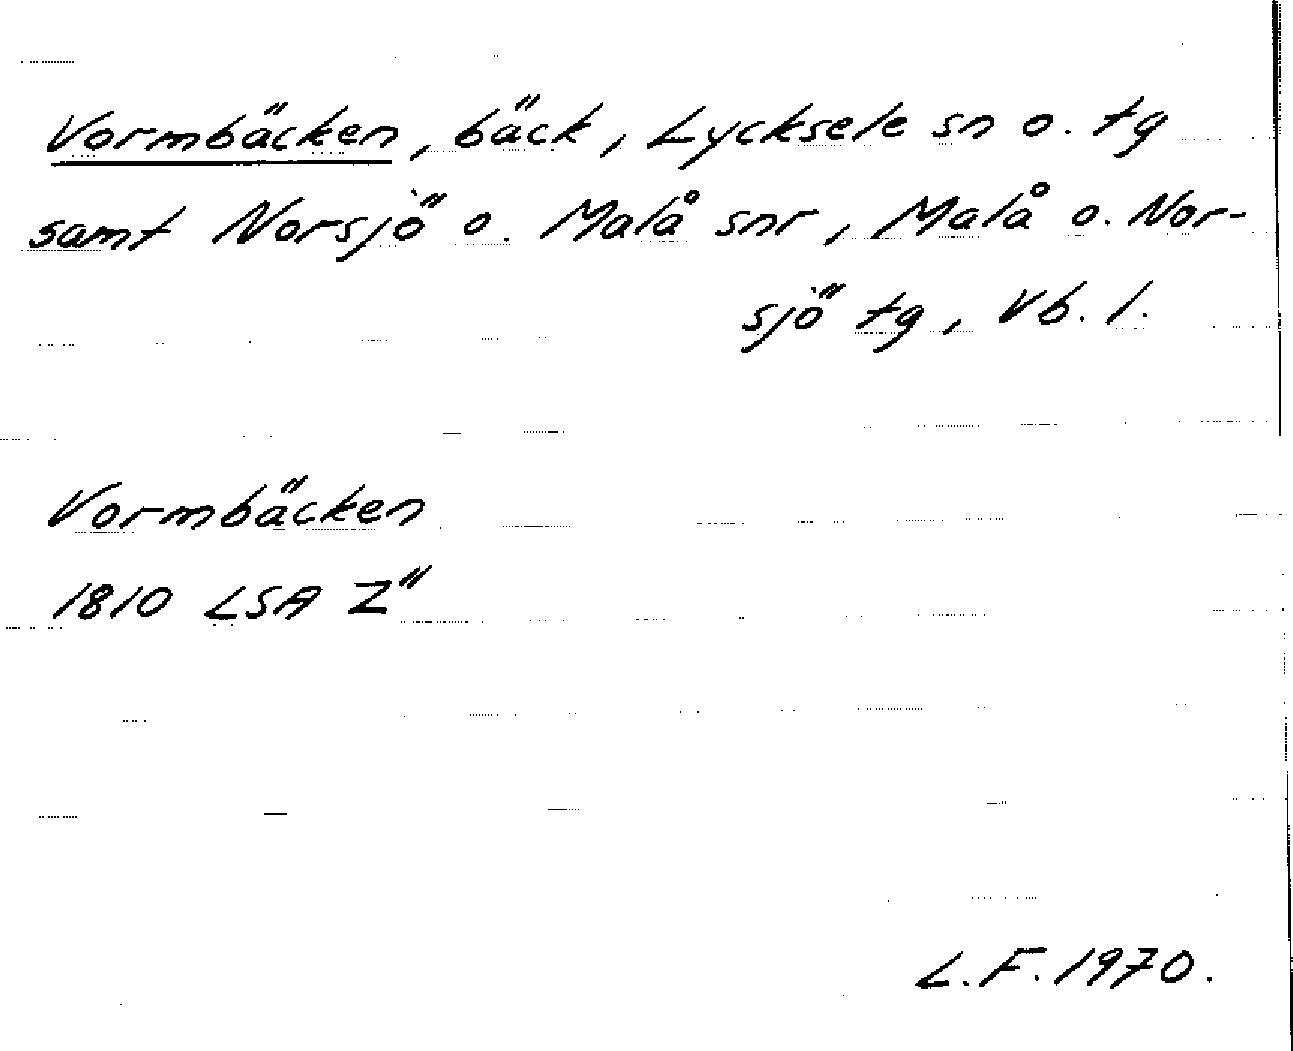 Vormbäcken, bäck, Lycksele sn o. tg
samt Norsjö o. Malå snr, Malå o. Nor-
sjö tg, Vb. l.
Vormbäcken
1810 LSA Z"
L.F. 1970.